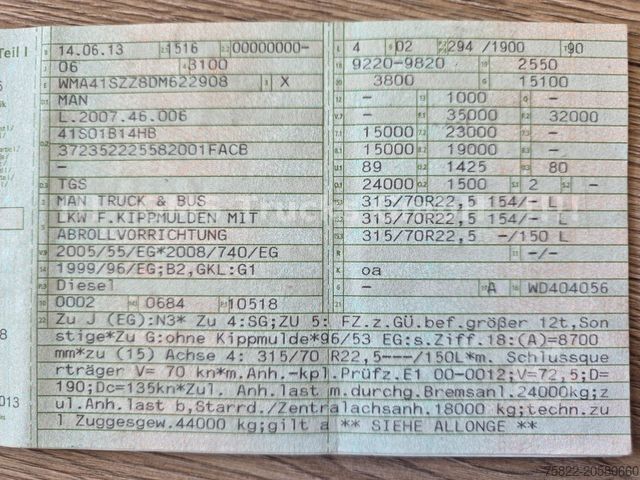 Teil I
B 14.06.13 2.1 1516 2.2 00000000-
J 06 4 3100
E WMA41SZZ8DM622908 3 X
D.1 MAN
L.2007.46.006
41S01B14HB
D.2 372352225582001FACB
-
D.3 TGS
2 MAN TRUCK & BUS
5 LKW F.KIPPMULDEN MIT
ABROLLVORRICHTUNG
V.9 2005/55/EG*2008/740/EG
14 1999/96/EG;B2,GKL:G1
P.3 Diesel
10 0002 14.1 0684 P.1 10518
L 4 9 02 P.2 P.4 294 /1900 T 90
18 9220-9820 19 2550
20 3800 G 15100
12 - 13 1000 Q -
V.7 - F.1 35000 F.2 32000
7.1 15000 7.2 23000 7.3 -
8.1 15000 8.2 19000 8.3 -
U.1 89 U.2 1425 U.3 80
O.1 24000 O.2 1500 S.1 2 S.2 -
15.1 315/70R22,5 154/- L
15.2 315/70R22,5 154/- L
15.3 315/70R22,5 -/150 L
R 11 -/-
K oa
6 - 17 A 16 WD404056
21
22 Zu J (EG):N3* Zu 4:SG;ZU 5: FZ.z.GÜ.bef.größer 12t,Son
stige*Zu G:ohne Kippmulde*96/53 EG:s.Ziff.18:(A)=8700
mm*zu (15) Achse 4: 315/70 R22,5---/150L*m. Schlussque
rträger V= 70 kn*m.Anh.-kpl.Prüfz.E1 00-0012;V=72,5;D=
190;Dc=135kn*Zul. Anh.last m.durchg.Bremsanl.24000kg;z
ul.Anh.last b,Starrd./Zentralachsanh.18000 kg;techn.zu
l Zuggesgew.44000 kg;gilt a ** SIEHE ALLONGE **
013
75822-20580660